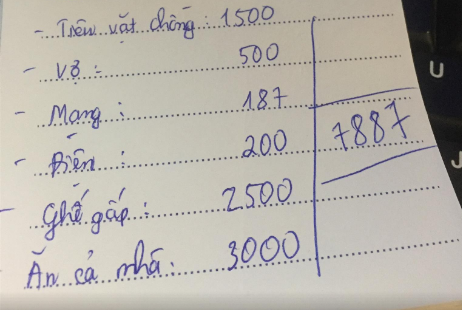 - Tiêu vặt chồng: 1500
- Vợ: 500
- Mạng: 187
- Điện: 200
7887
- Ghế gấp: 2500
Ăn cả nhà: 3000
U
J